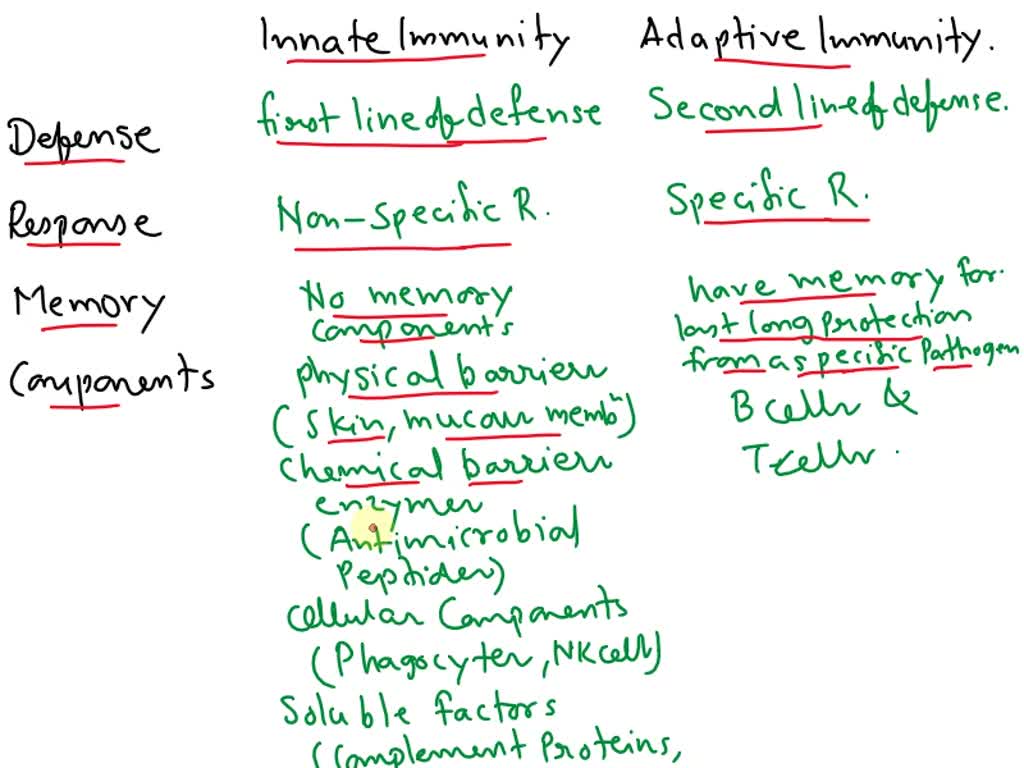 Innate Immunity Adaptive Immunity.
Defense first line of defense Second line of defense.
Response Non-Specific R. Specific R.
Memory No memory have memory for
components last long protection
from a specific Pathogen
Components physical barriers B cells &
(skin, mucous memb^n) T cells.
Chemical barriers
enzymes
(Antimicrobial
Peptides)
Cellular Components
(Phagocytes, NK cells)
Soluble factors
(Complement Proteins,